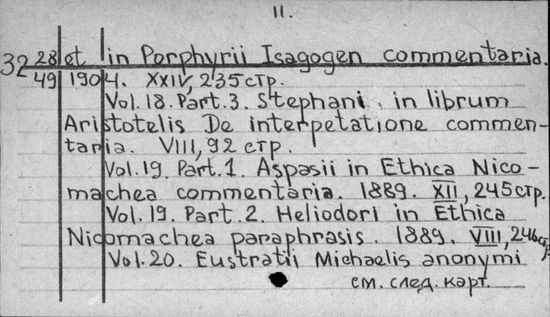 11.
32 28/49 et in Porphyrii Isagogen commentaria.
1904. XXIV, 235 стр.
Vol. 18. Part. 3. Stephani in librum
Aristotelis De interpetatione commen-
taria. VIII, 92 стр.
Vol. 19. Part. 1. Aspasii in Ethica Nico-
machea commentaria. 1889. XII, 245 стр.
Vol. 19. Part. 2. Heliodori in Ethica
Nicomachea paraphrasis. 1889. VIII, 246 стр.
Vol. 20. Eustratii Michaelis anonymi
см. след. карт.